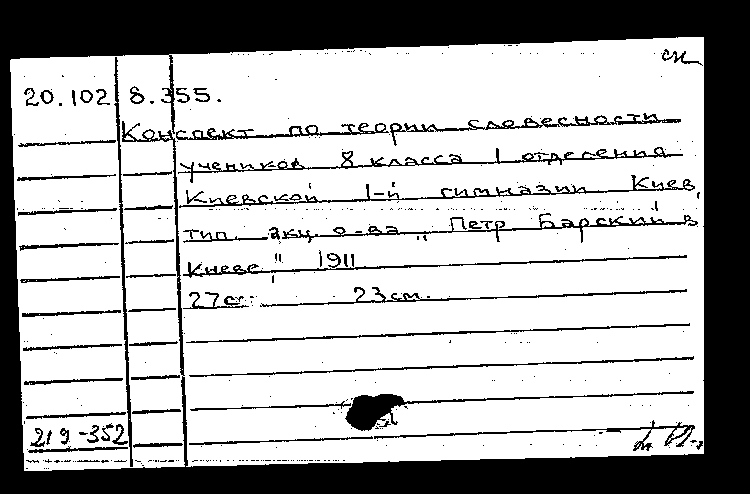 20.102 8.355.
Конспект по теории словесности
учеников 8 класса 1 отделения
Киевской 1-й гимназии Киев,
тип. акц. о-ва „Петр Барский в
Киеве" 1911
27с. 23см.
219-352